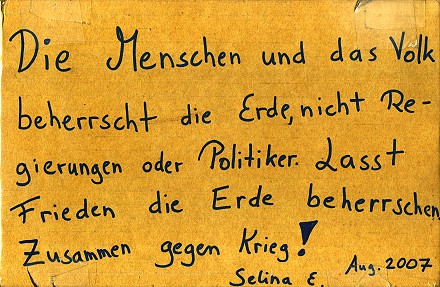 Die Menschen und das Volk
beherrscht die Erde, nicht Re-
gierungen oder Politiker. Lasst
Frieden die Erde beherrschen
Zusammen gegen Krieg!
Selina E. Aug. 2007